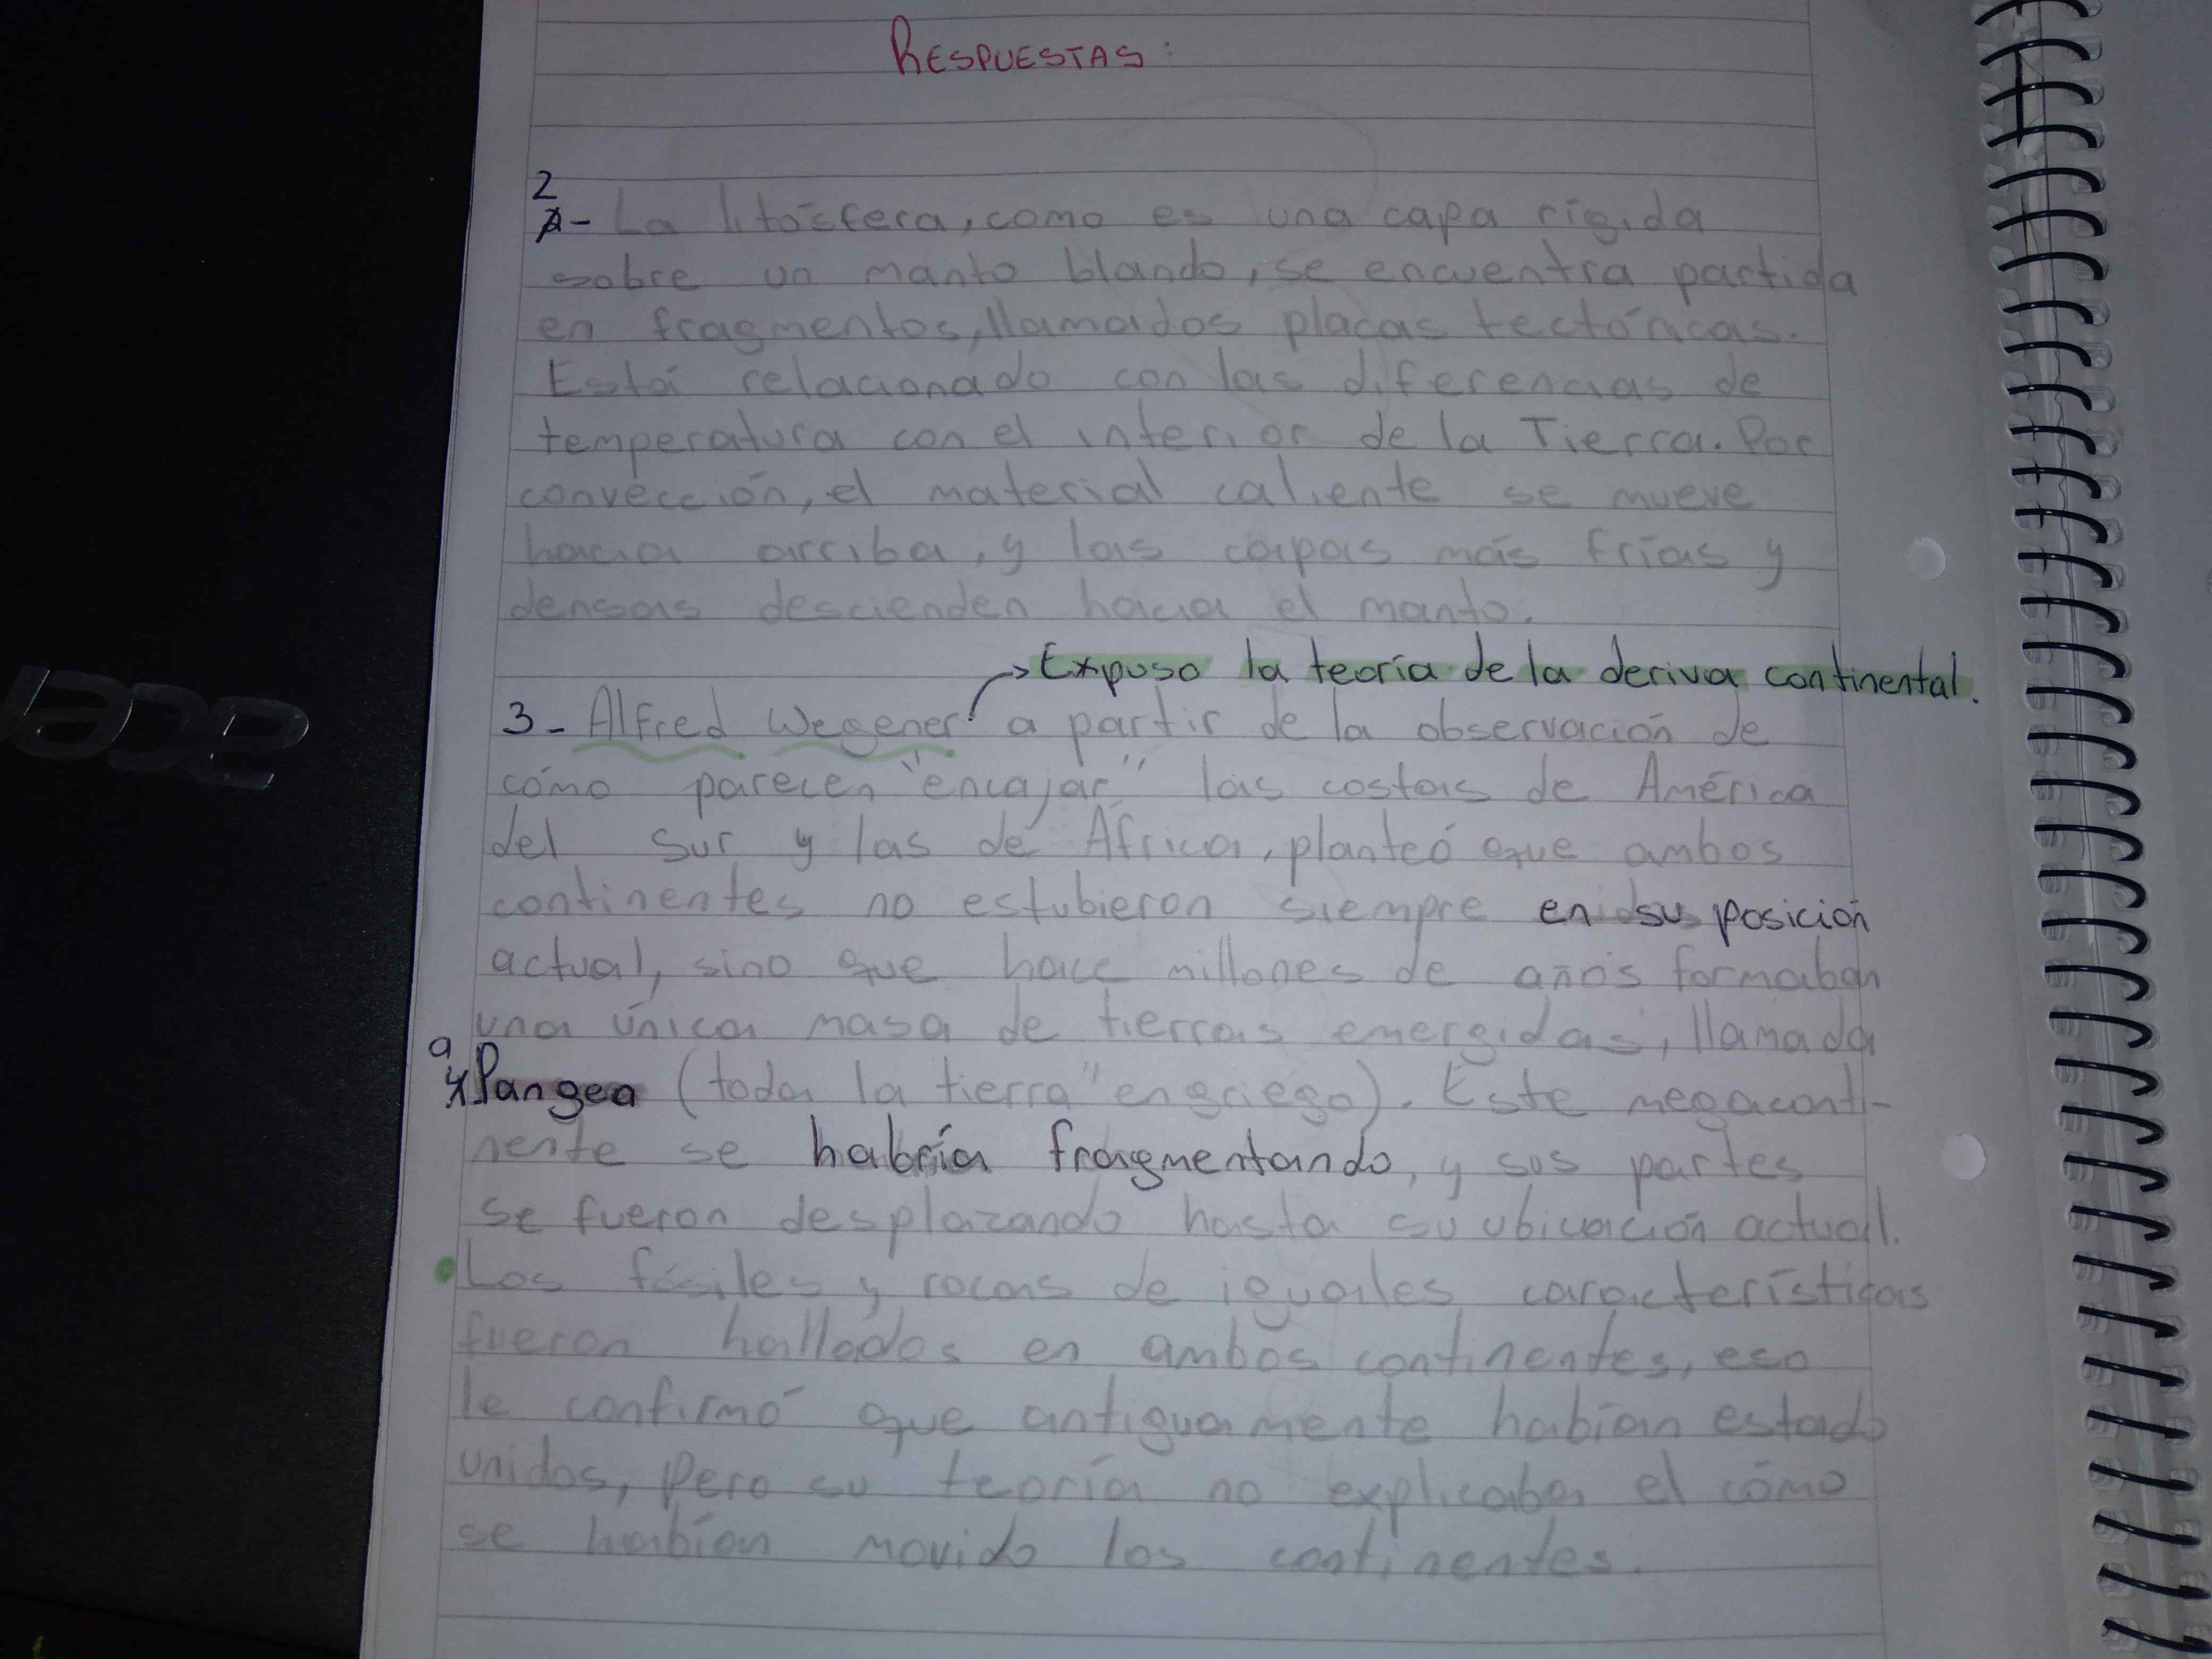 RESPUESTAS:
2
1- La litósfera, como es una capa rígida
sobre un manto blando, se encuentra partida
en fragmentos, llamados placas tectónicas.
Está relacionado con las diferencias de
temperatura con el interior de la Tierra. Por
convección, el material caliente se mueve
hacia arriba, y las capas más frías y
densas descienden hacia el manto.
→ Expuso la teoría de la deriva continental.
3- Alfred Wegener a partir de la observación de
cómo parecen "encajar" las costas de América
del Sur y las de África, planteó que ambos
continentes no estubieron siempre en su posición
actual, sino que hace millones de años formaban
una única masa de tierras emergidas, llamada
a
Pangea (toda la tierra" en griego). Este megaconti-
nente se habría fragmentando, y sus partes
se fueron desplazando hasta su ubicación actual.
Los fósiles y rocas de iguales características
fueron hallados en ambos continentes, eso
le confirmó que antiguamente habían estado
unidos, pero su teoría no explicaba el cómo
se habían movido los continentes.
acer